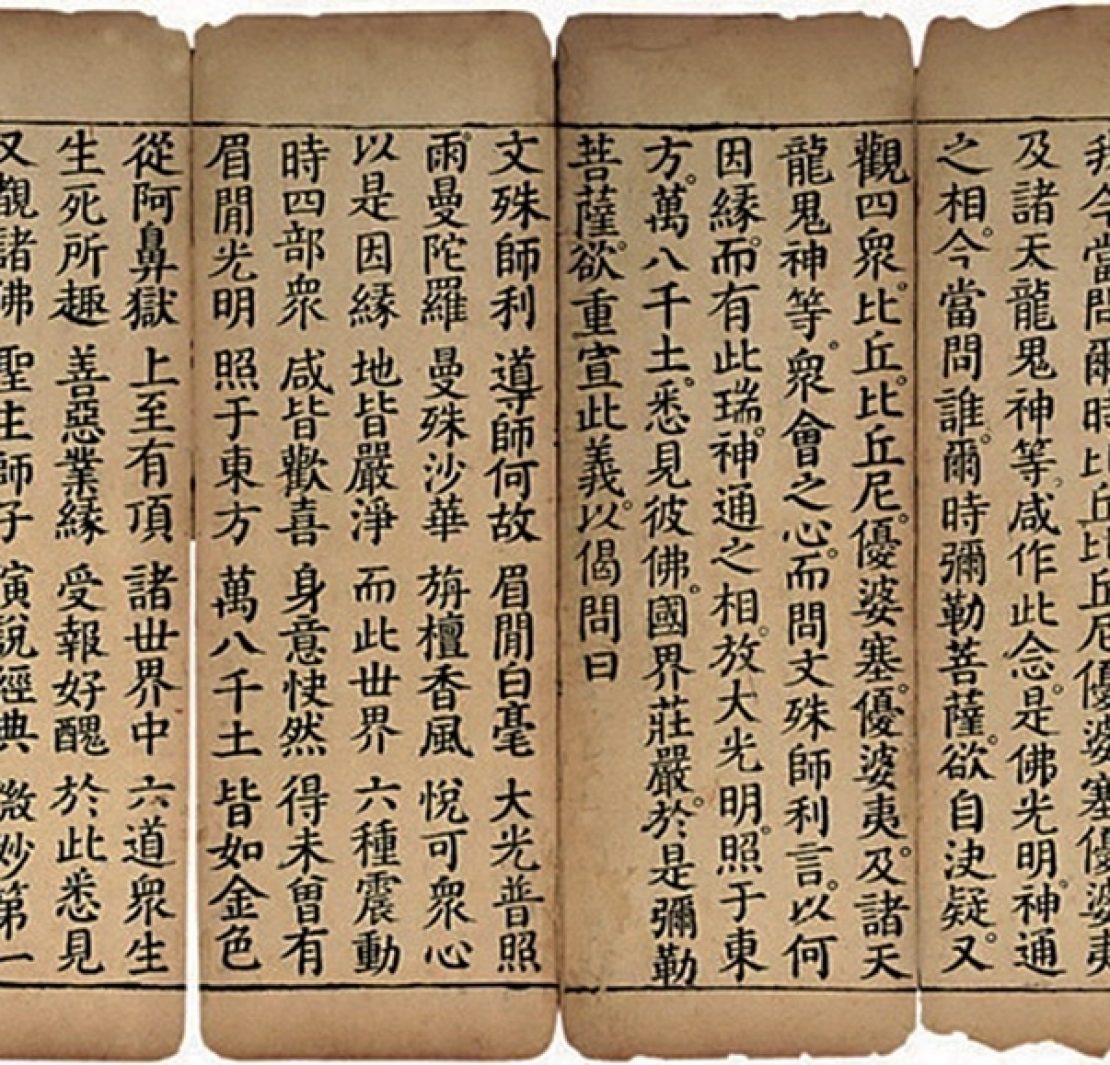 我今當問爾時比丘比丘尼優婆塞優婆夷
及諸天龍鬼神等。咸作此念。是佛光明。神通
之相。今當問誰。爾時彌勒菩薩。欲自决疑。又
觀四衆。比丘。比丘尼。優婆塞。優婆夷。及諸天
龍鬼神等。衆會之心。而問文殊師利言。以何
因緣。而有此瑞。神通之相。放大光明。照于東
方。萬八千土。悉見彼佛。國界莊嚴。於是彌勒
菩薩。欲重宣此義。以偈問曰
文殊師利 導師何故 眉閒白毫 大光普照
雨曼陀羅 曼殊沙華 旃檀香風 悅可衆心
以是因緣 地皆嚴淨 而此世界 六種震動
時四部衆 咸皆歡喜 身意快然 得未曾有
眉閒光明 照于東方 萬八千土 皆如金色
從阿鼻獄 上至有頂 諸世界中 六道衆生
生死所趣 善惡業緣 受報好醜 於此悉見
又覩諸佛 聖主師子 演說經典 微妙第一